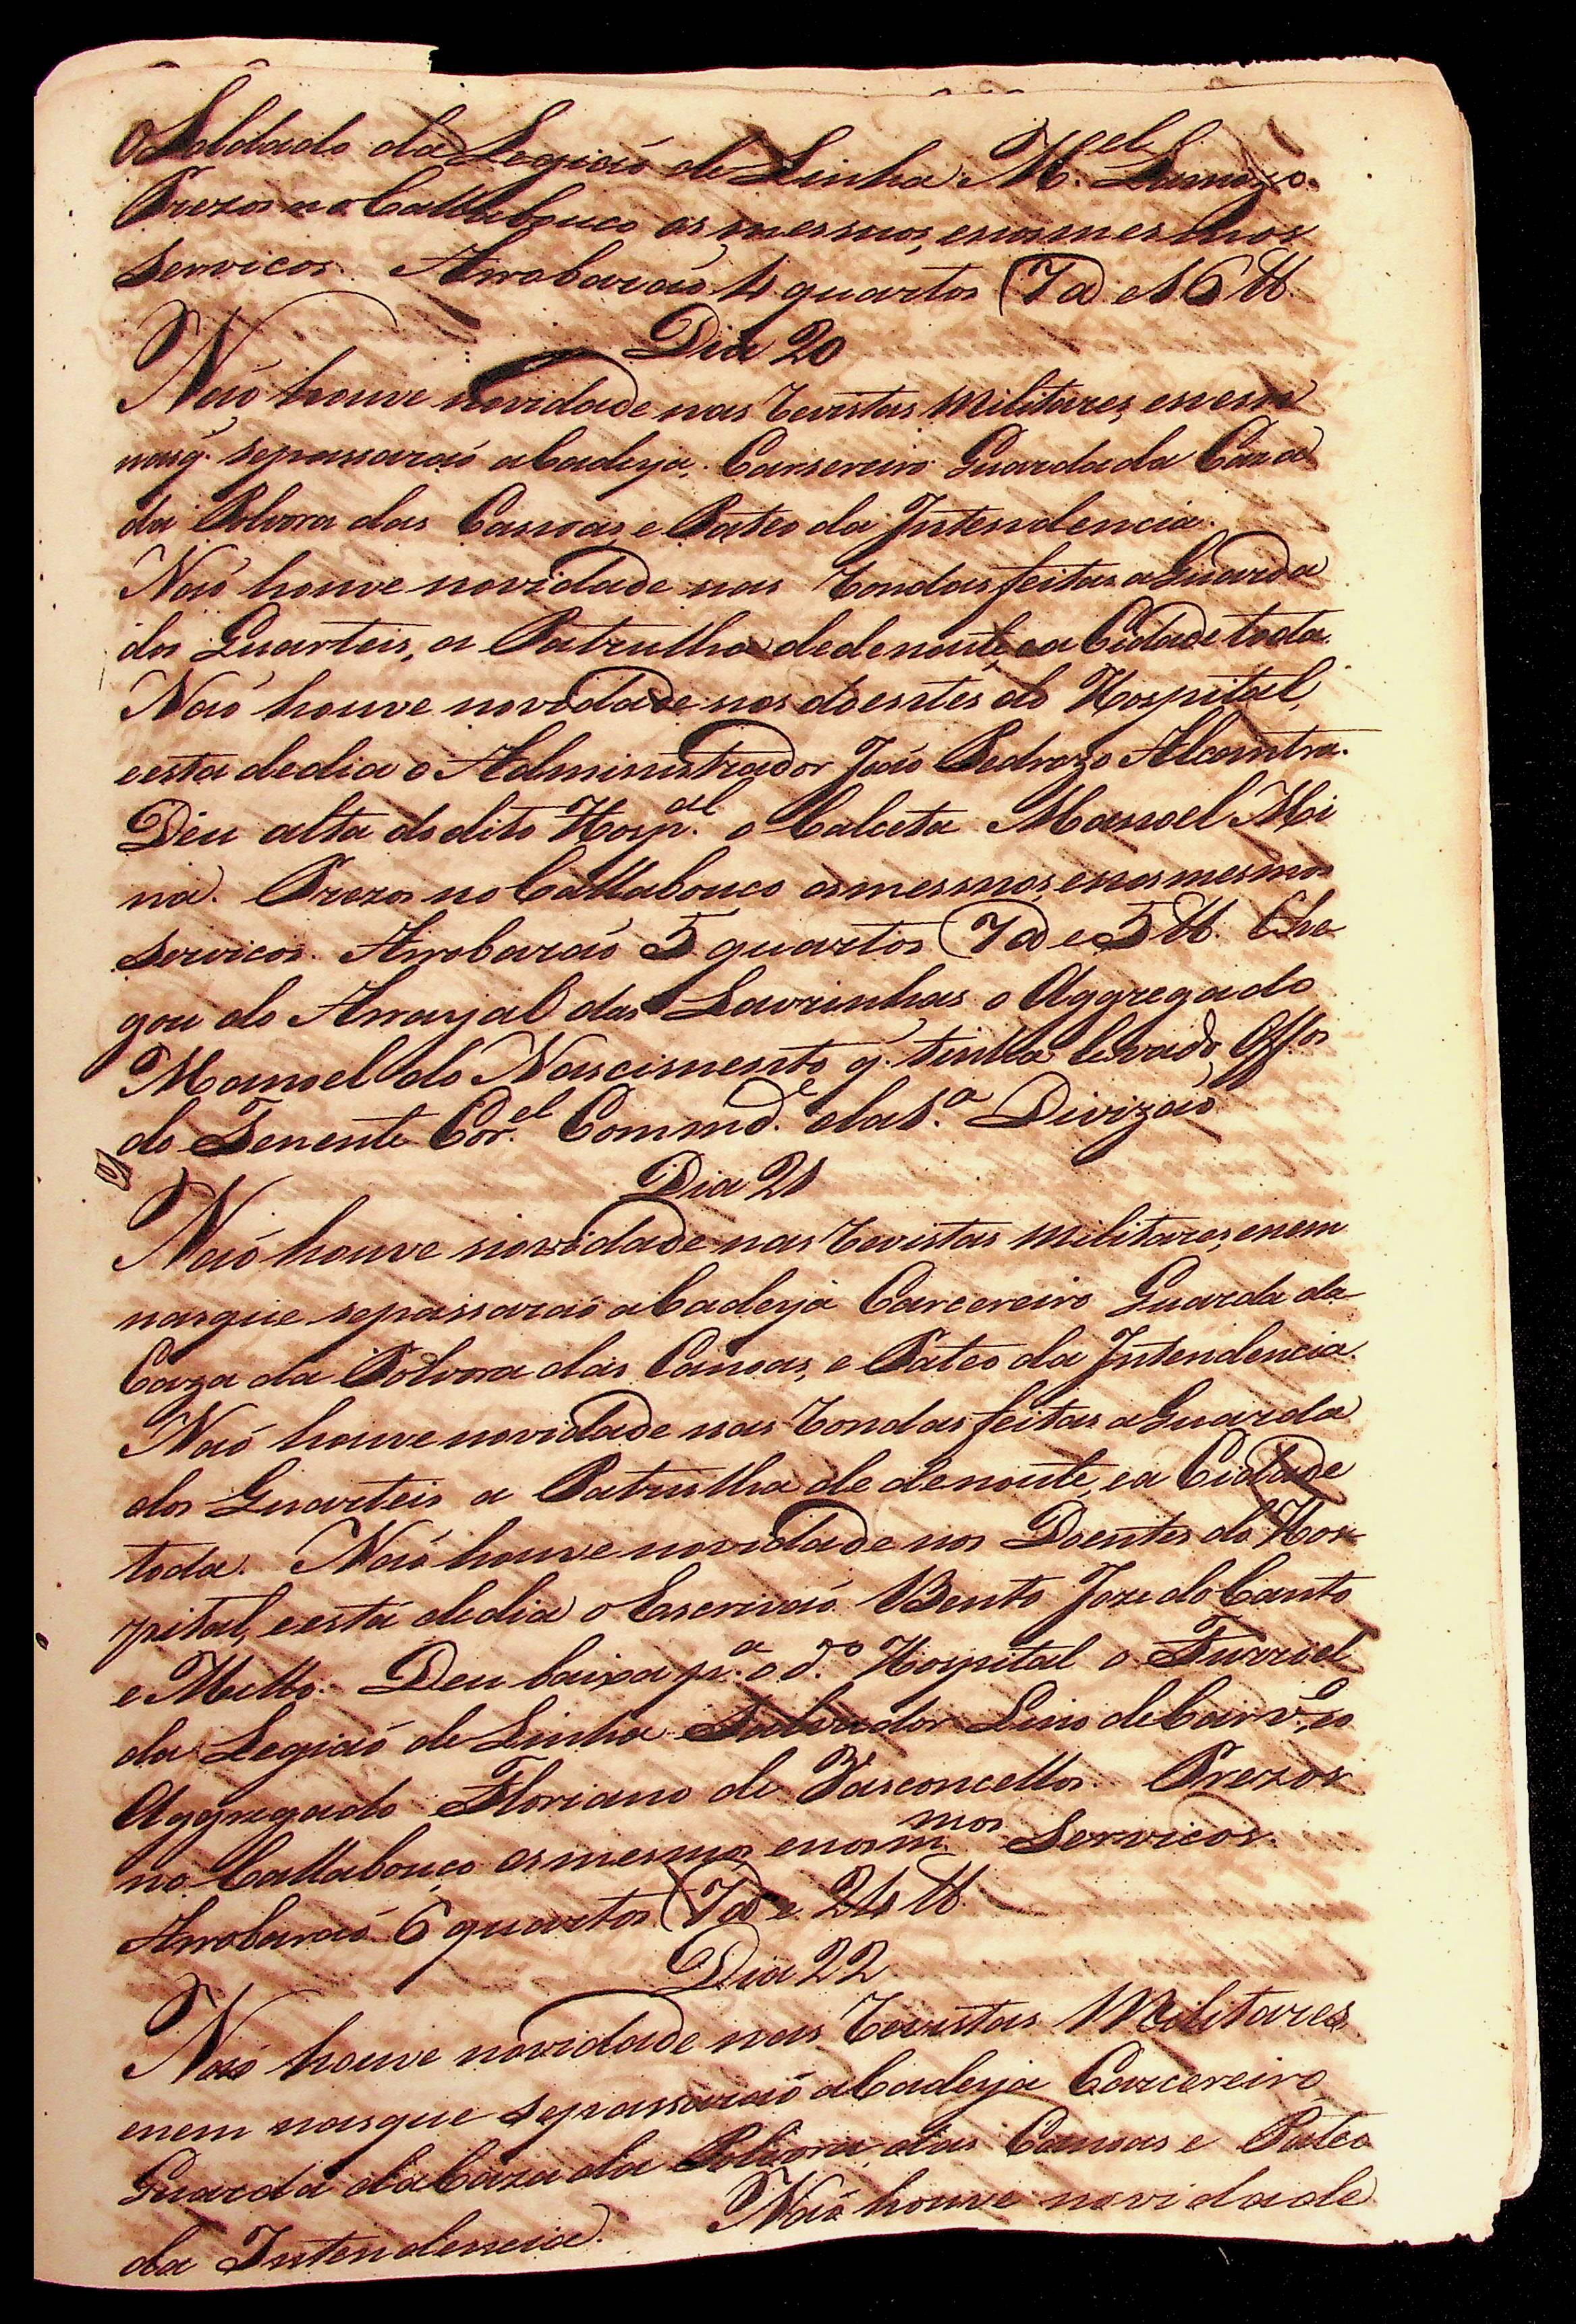 O Soldado da Legiaõ de Linha M.el
Prezos no Callabouço os mesmos, enos mesmos
Servicos. Arrobaraõ 4 quartos 7@ e 16 ℔.
Dia 20
Naõ houve novidade nas Revistas Militares, enem
nas q. sepassaraõ a Cadeya, Carsereiro Guarda da Caza
da Polvora das Canoas, e Pateo da Intendencia.
Naõ houve novidade nas Rondas feitas a Guarda
dos Quarteis, a Patrulha dedenoute, ea Cidade toda.
Naõ houve novidade nos doentes do Hospital,
eesta dedia o Administrador Joaõ Pedrozo Alcantra.
Deu alta do dito Hosp.al o Calceta Manoel Mi
na. Prezos no Callabouco osmesmos, enosmesmos
Servicos. Arrobaraõ 5 quartos 7@ e 5 ℔. Che
gou do Arrayal das Lavrinhas o Aggregado
Manoel do Nascimento q. tinha levado Off.os
do Tenente Cor.el Command.e da 1.a Divizaõ
Dia 21
Naõ houve novidade nas Revistas Militares, enem
nasque sepassaraõ a Cadeya Carcereiro Guarda da
Caza da Polvora das Canoas, e Pateo da Intendencia.
Naõ houve novidade nas Rondas feitas a Guarda
dos Quarteis a Patrulha de denoute, ea Cidade
toda. Naõ houve novidade nos Doentes do Hos-
pital, eestá dedia o Escrivaõ Bento Joze do Canto
e Mello. Deu baixa p.a o d.o Hospital o Furriel
da Legiaõ de Linha Salvador Lino de Carv.o, eo
Aggregado Floriano de Vasconcellos. Prezos
no Callabouço osmesmos, enosm.mos Servicos.
Arrobaraõ 6 quartos 7@ e 24 ℔.
Dia 22
Naõ houve novidade nas Revistas Militares
enem nasque sepassaraõ a Cadeya Carcereiro
Guarda da Caza da Polvora, das Canoas e Pateo
da Intendencia. Naõ houve novidade